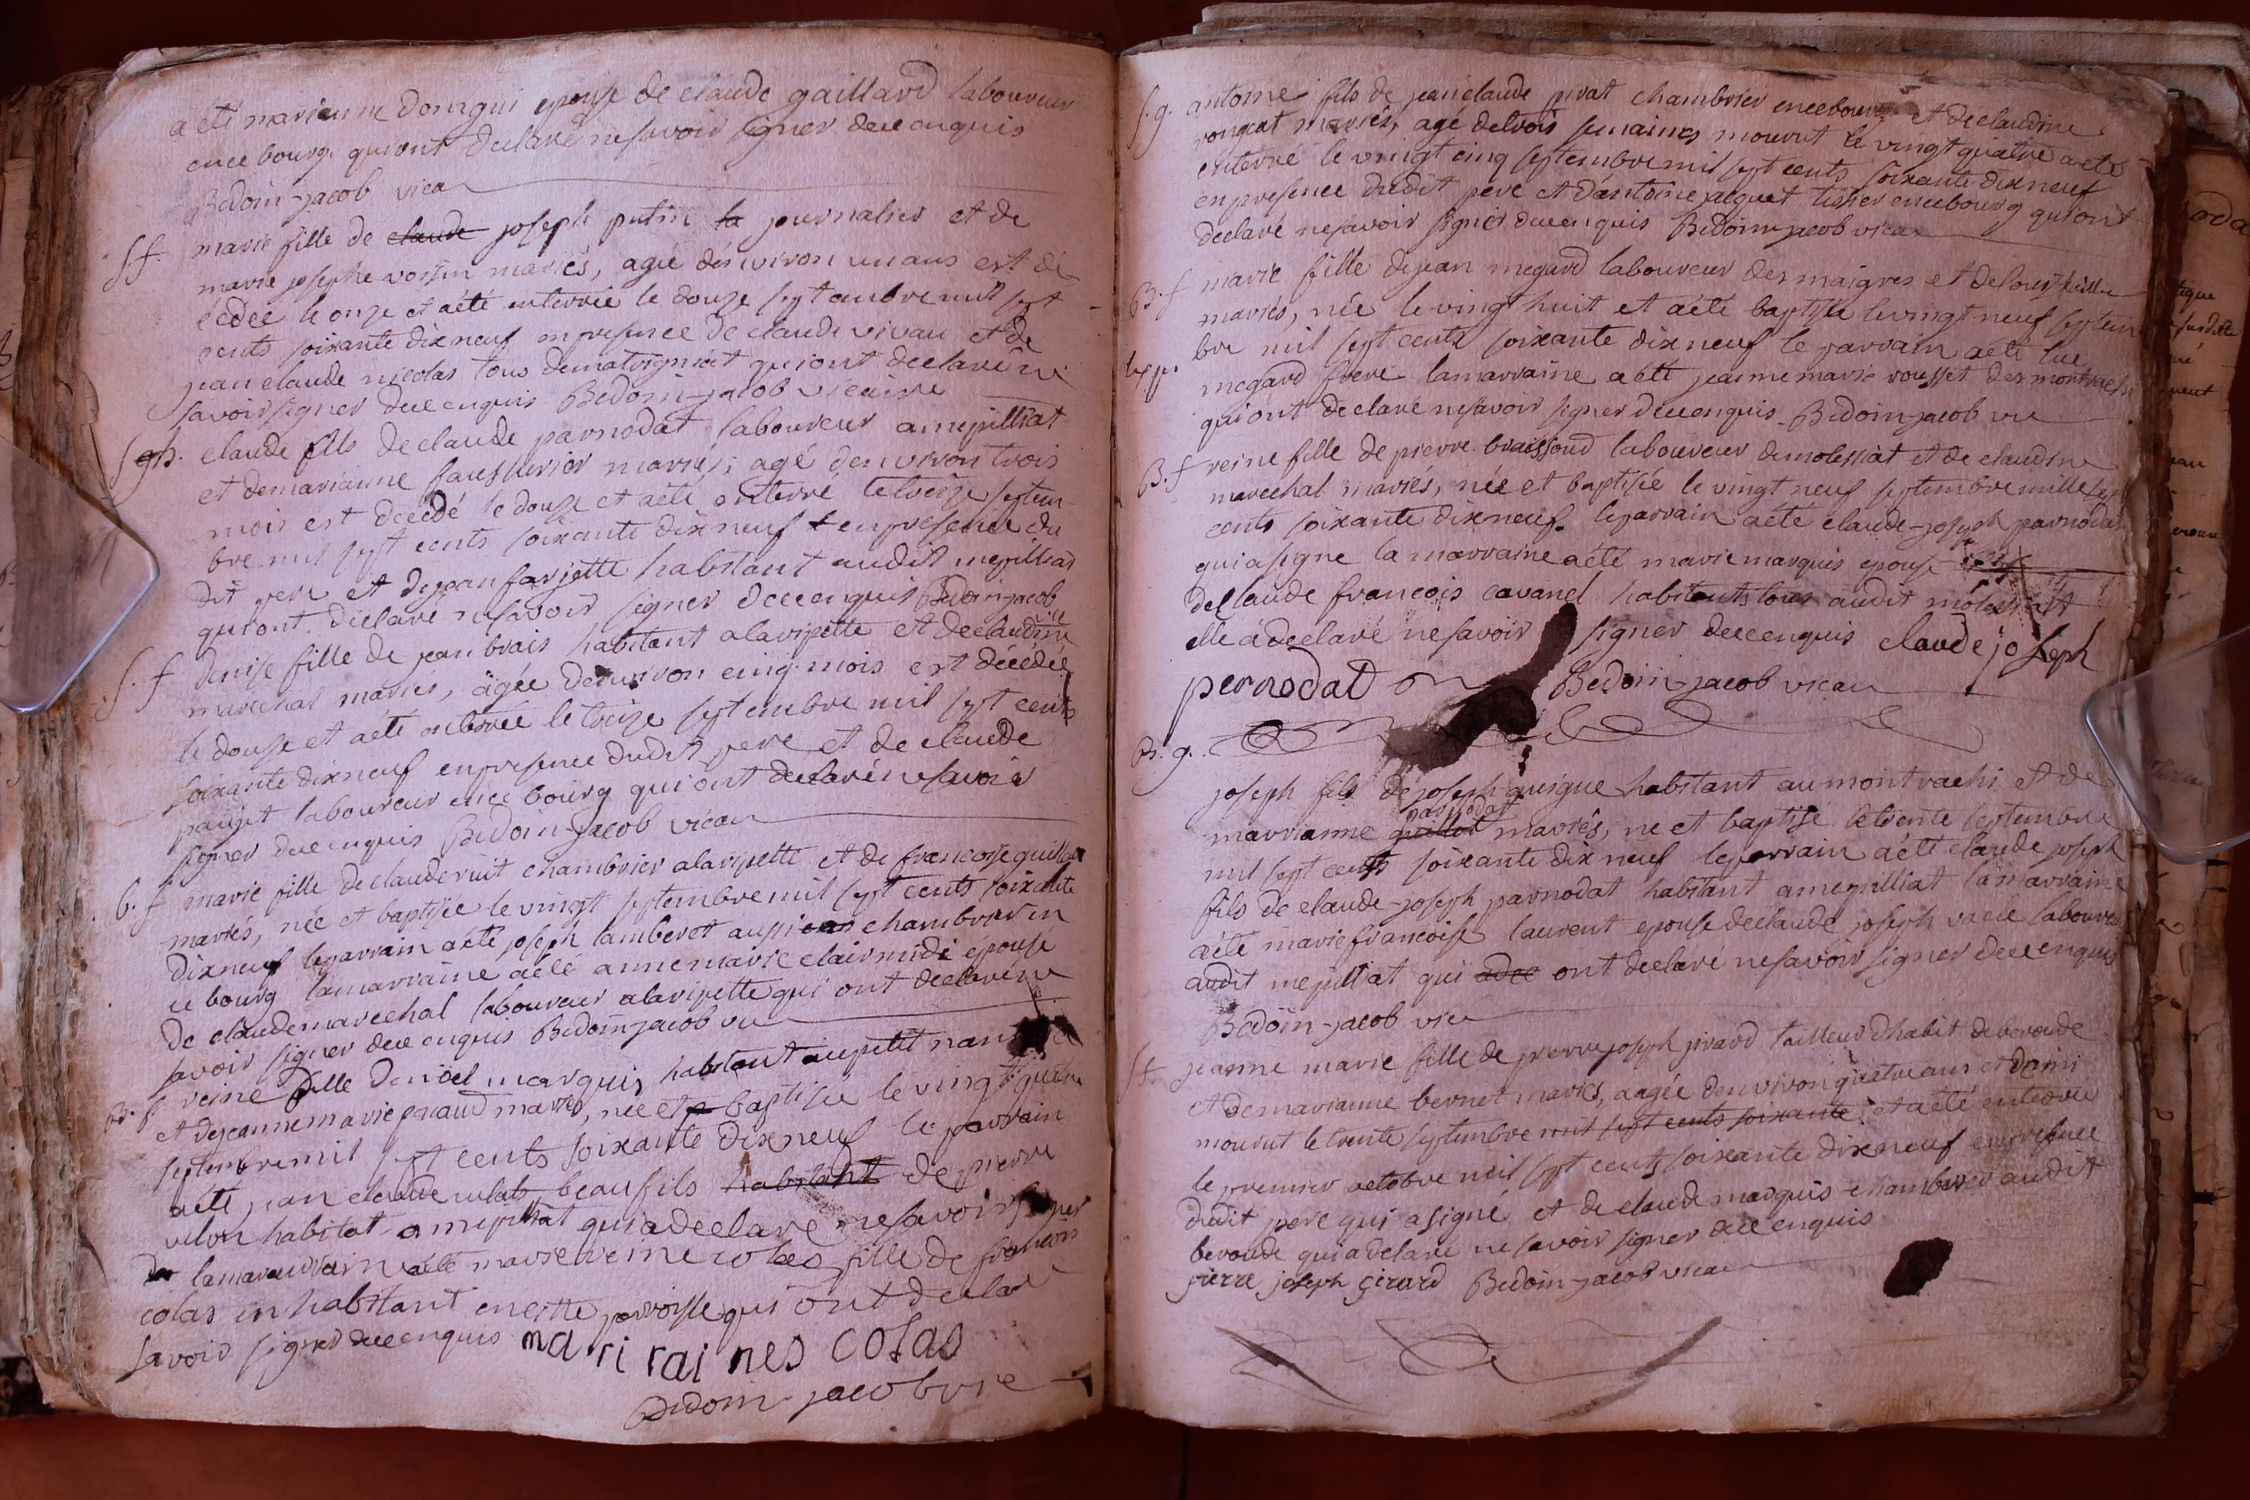 a été marianne domgui epouse de claude gaillard laboureur
en ce bourg qui ont declaré ne savoir signer de ce enquis
Bedoin-jacob vicai
S f. marie fille de claude joseph putin la journalier et de
marie josephe voisin mariés, agée d'environ un ans est dé
cedée le onze et a été enterrée le douze septembre mil sept
cents soixante dix neuf en presence de claude vivan et de
jean claude nicolas tous de matrignat qui ont declaré ne
savoir signer de ce enquis Bedoin-jacob vicaire
S g. claude fils de claude parnodat laboureur a mepilliat
et de marianne mariés, agé d'environ trois
mois est decédé le douze et a été enterré le treize septem
bre mil sept cents soixante dix neuf en presence du
dit pere et de jean farjette habitant audit mepilliat
qui ont declaré ne savoir signer de ce enquis Bedoin-jacob
vic
S. f denise fille de jean brais habitant a laripette et de claudine
marechal mariés, agée d'environ cinq mois est décédée
le douse et a été enterrée le treize septembre mil sept cents
soixante dix neuf en presence dudit pere et de claude
laboureur en ce bourg qui ont declaré ne savoir
signer de ce enquis Bedoin-jacob vicai
b. f marie fille de claude ruit chambrier a laripette et de francoise
mariés, née et baptisée le vingt septembre mil sept cents soixante
dix neuf le parrain a été joseph lamberet aussi chambrier en
ce bourg la marraine a été anne marie clairmidi epouse
de claude marechal laboureur a laripette qui ont declaré ne
savoir signer de ce enquis Bedoin-jacob vic
B. f reine fille de noël marquis habitant au petit
et de jeanne marie mariés, née et baptisée le vingt quatre
septembre mil sept cents soixante dix neuf le parrain
a été jean claude beaufils habitant de pierre
habitat a mepilliat qui a declaré ne savoir signer
la marraine a été marie reine colas fille de francois
colas en habitant en cette parroisse qui ont declaré
savoir signer de ce enquis mari raines colas
Bedoin-jacob vic
S. g. antoine fils de jean claude pirat chambrier en ce bourg et de claudine
rongeat mariés, agé de trois semaines mourut le vingt quatre a été
enterré le vingt cinq septembre mil sept cents soixante dix neuf
en presence dudit pere et d'antoine jacquet tissier en ce bourg qui ont
declaré ne savoir signer de ce enquis Bedoin-jacob vicai
B. f marie fille de jean megard laboureur des maigres et de
mariés, née le vingt huit et a été baptisée le vingt neuf septem
bre mil sept cents soixante dix neuf le parrain a été luc
megard frere la marraine a été jeanne marie rousset des
qui ont declaré ne savoir signer de ce enquis Bedoin-jacob vic
B. f reine fille de pierre laboureur de molessiat et de claudine
marechal mariés, née et baptisée le vingt neuf septembre mille sept
cents soixante dix neuf. le parrain a été claude-joseph parnodat
qui a signé la marraine a été marie marquis epouse
de claude francois cavanel habitants tous audit molessiat
elle a declaré ne savoir signer de ce enquis claude joseph
pernodat Bedoin-jacob vicai
B. g.
joseph fils de joseph quigue habitant au montrachi et de
parnodat
marrianne guillot mariés, né et baptisé le trente septembre
mil sept cents soixante dix neuf le parrain a été claude joseph
fils de claude-joseph parnodat habitant a mepilliat la marraine
a été marie francoise laurent epouse de claude joseph laboureur
audit mepilliat qui ont declaré ne savoir signer de ce enquis
Bedoin-jacob vic
S f. jeanne marie fille de pierre joseph jirard tailleur d'habit de beroude
et de marianne bernet mariés, agée d'environ quatre ans et demi
mourut le trente septembre mil sept cents soixante et a été enterrée
le premier octobre mil sept cents soixante dix neuf en presence
dudit pere qui a signé et de claude marquis chambrier audit
beroude qui a declaré ne savoir signer de ce enquis
pierre joseph girard Bedoin-jacob vicai